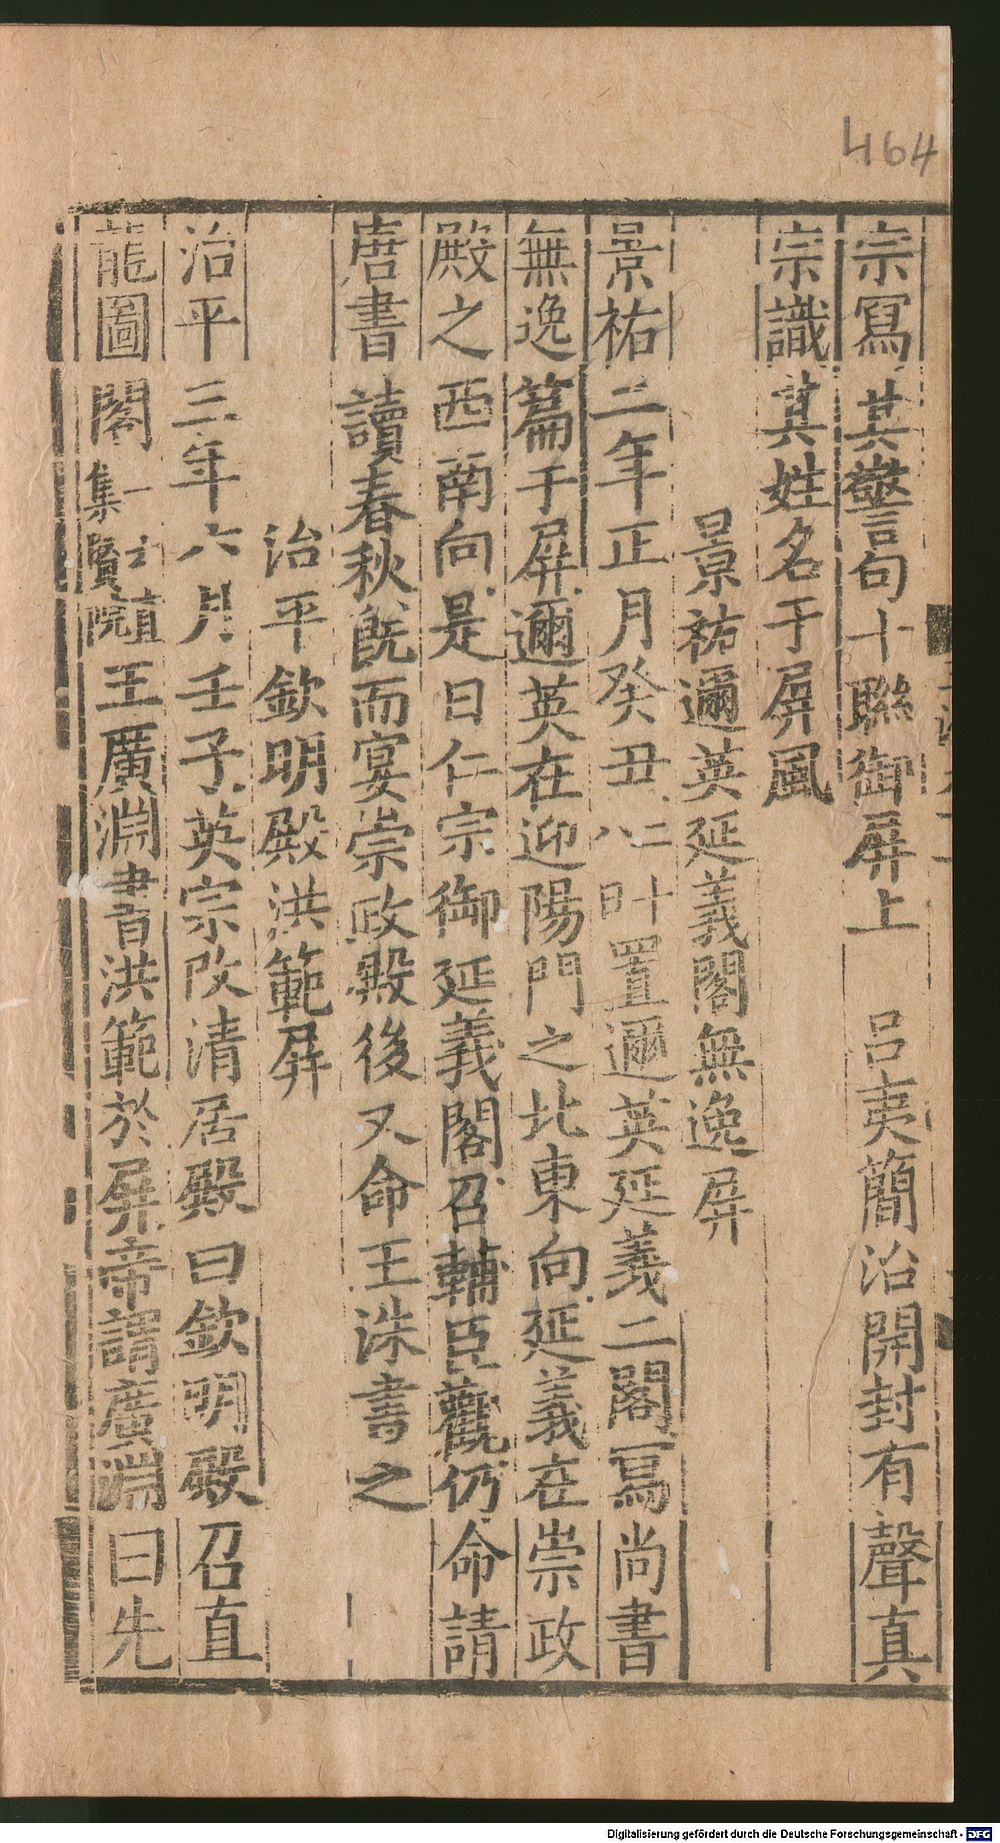 464
宗寫其警句十聯御屏上　呂夷簡治開封有聲真
宗識其姓名于屏風
景祐邇英延義閣無逸屏
景祐二年正月癸丑置邇英延義二閣寫尚書
無逸篇于屏邇英在迎陽門之北東向延義在崇政
殿之西南向是日仁宗御延義閣召輔臣觀仍命請
唐書讀春秋既而宴崇政殿後又命王洙書之
治平欽明殿洪範屏
治平三年六月壬子英宗改清居殿曰欽明殿召直
龍圖閣一云直集賢院王廣淵書洪範於屏帝謂廣淵曰先
Digitalisierung gefördert durch die Deutsche Forschungsgemeinschaft - DFG